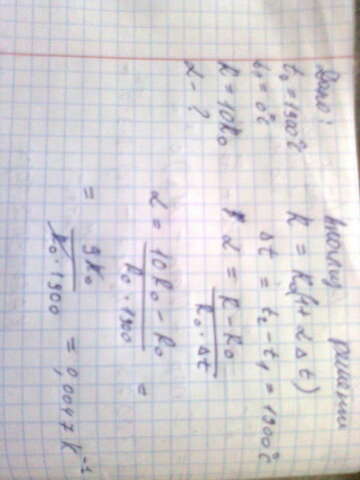 Дано:
t₂ = 1900°C
t₁ = 0°C
R = 10R₀
α - ?
Анализ решения
R = R₀(1 + αΔt)
Δt = t₂ - t₁ = 1900°C
α = R - R₀ / R₀ · Δt
α = 10R₀ - R₀ / R₀ · 1900 =
= 9R₀ / R₀ · 1900 = 0,0047 K⁻¹